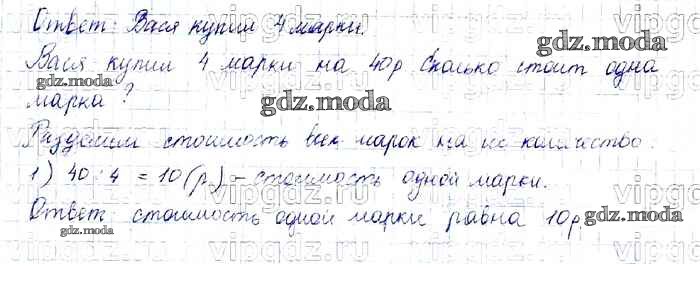 Ответ: Вася купил 4 марки.
Вася купил 4 марки на 40р Сколько стоит одна
марка?
Разделим стоимость всех марок на их количество.
1) 40 : 4 = 10 (р.) – стоимость одной марки.
Ответ: стоимость одной марки равна 10р.
gdz.moda
gdz.moda
gdz.moda
gdz.moda
gdz.moda
gdz.moda
gdz.moda